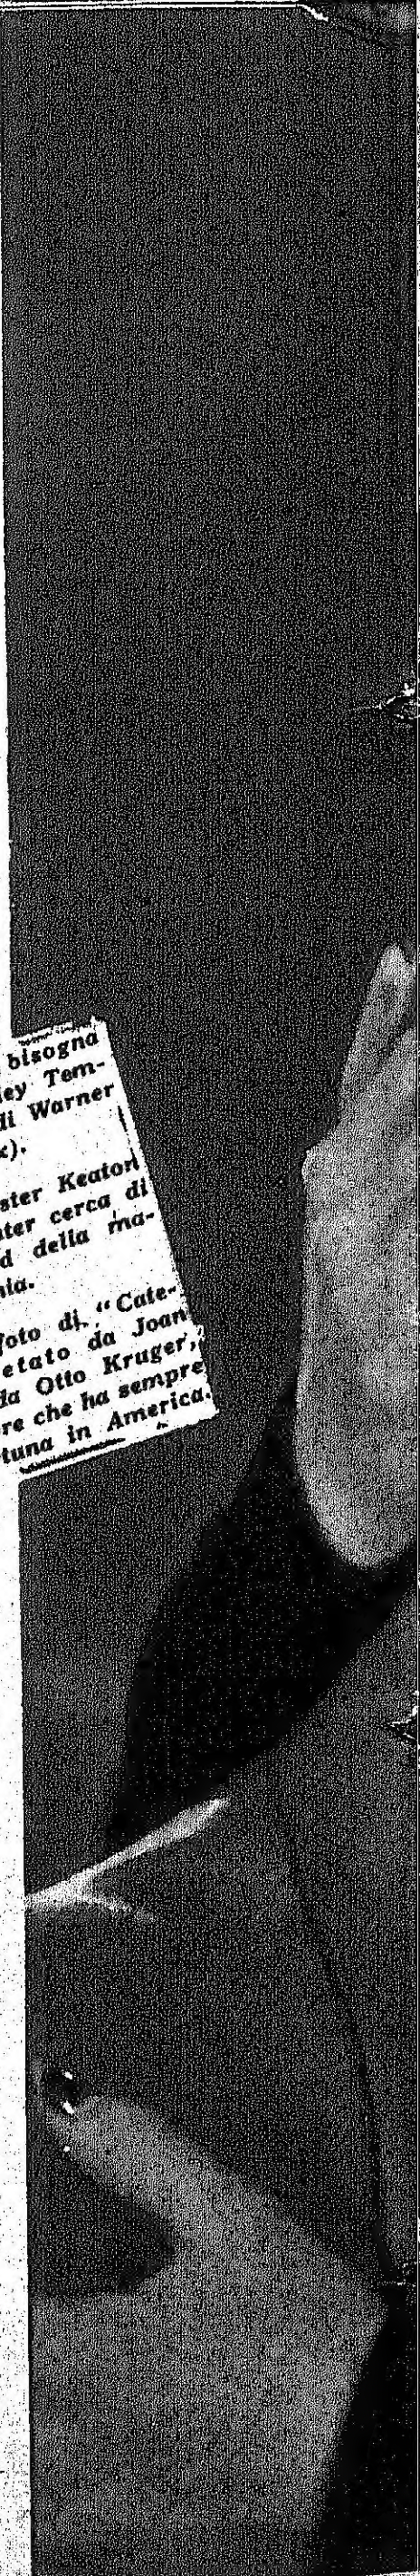 bisogna
ley Tem-
di Warner
x).
ster Keaton
nter cerca di
d della ma-
nia.
foto di "Cate-
etato da Joan
da Otto Kruger,
re che ha sempre
tuna in America.